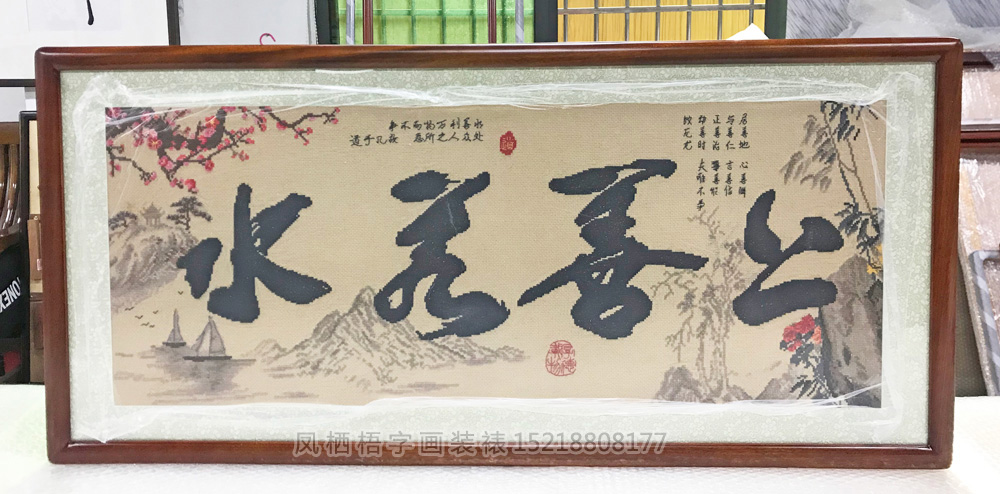 上善若水
居善地 心善渊
与善仁 言善信
正善治 事善能
动善时 夫唯不争
故无尤
水善利万物而不争
处众人之所恶 故几于道
凤栖梧字画装裱15218808177
ONEX